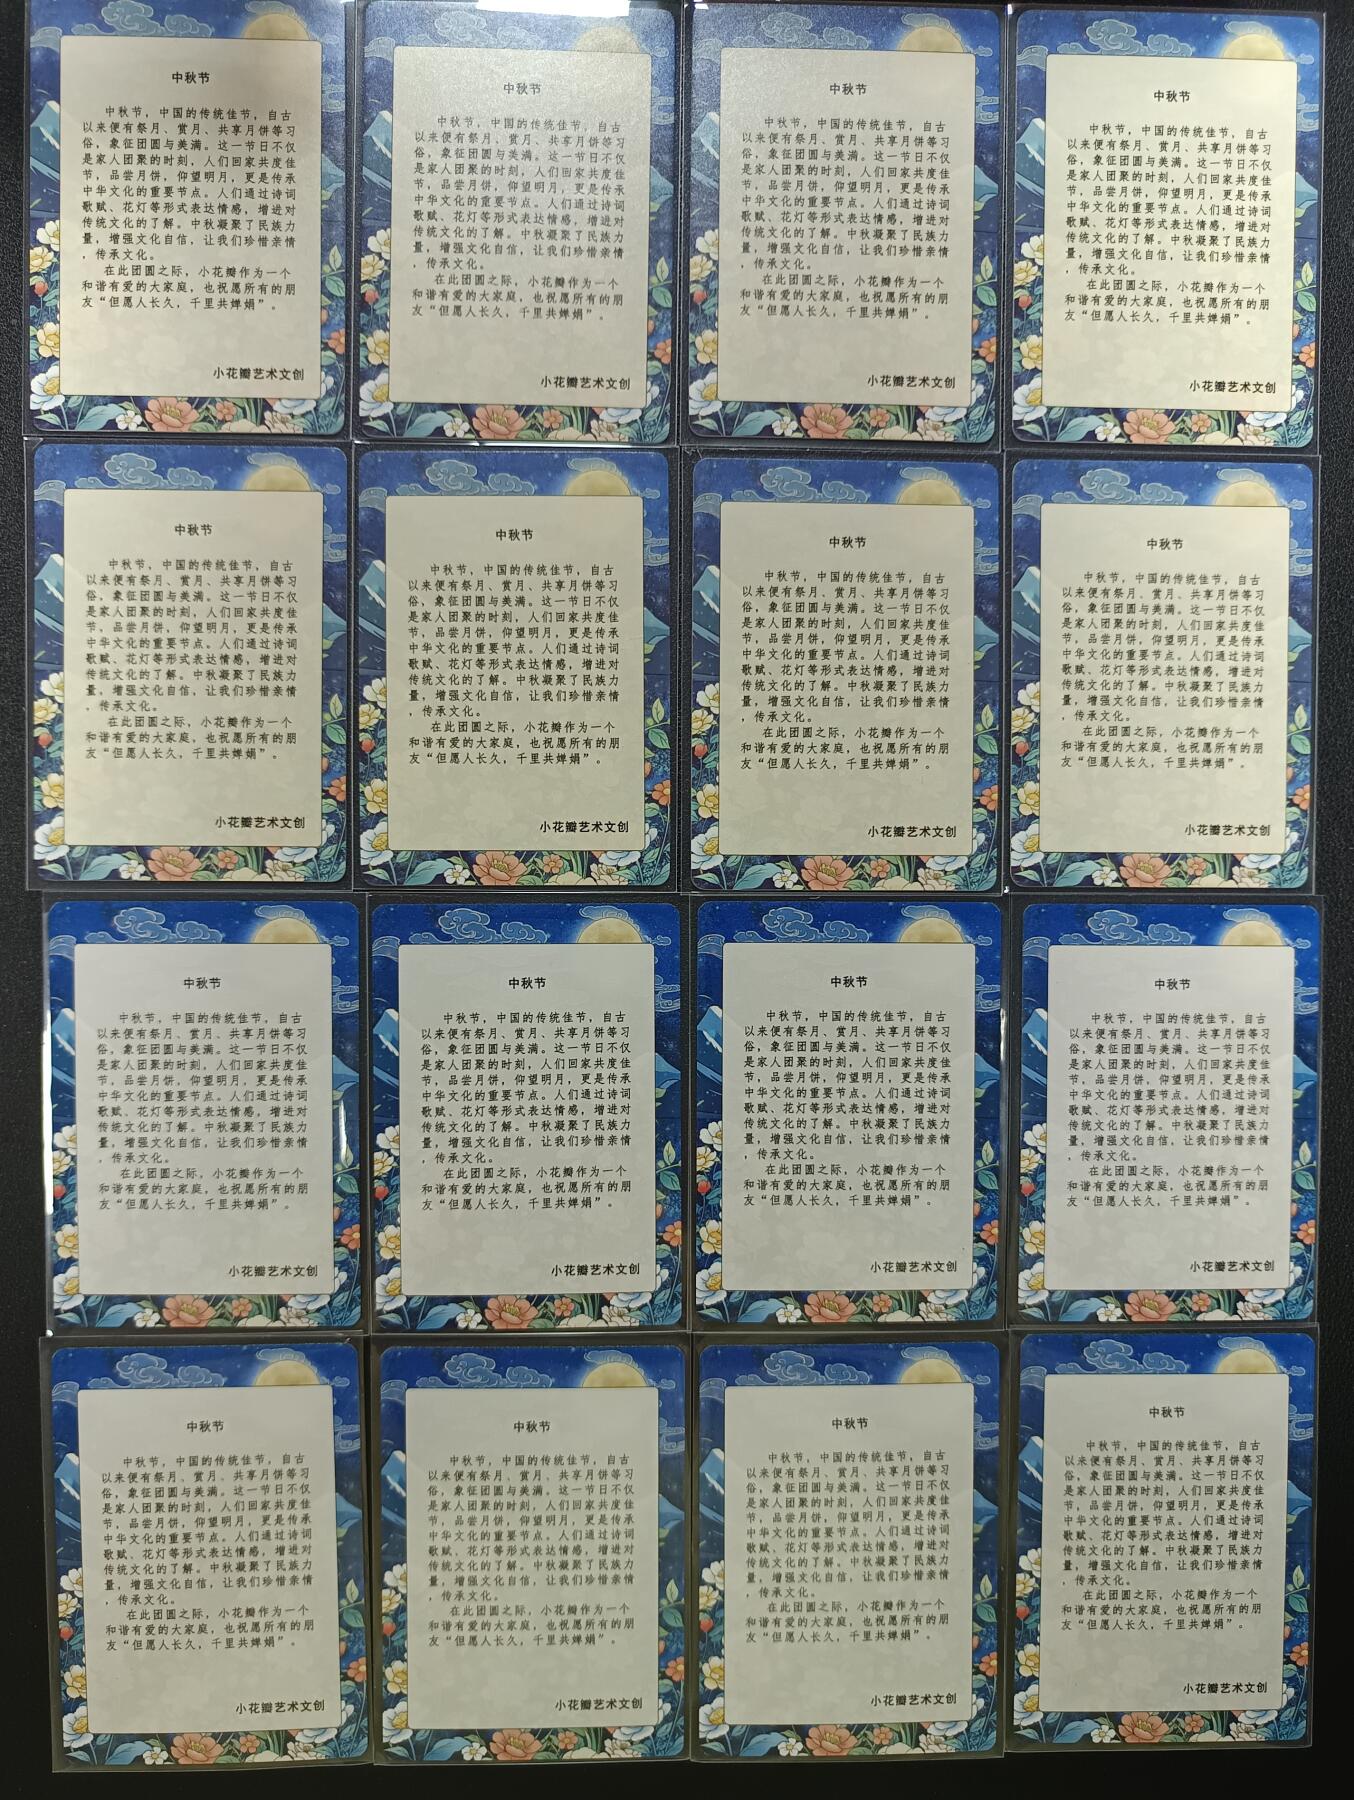 中秋节
中秋节，中国的传统佳节，自古
以来便有祭月、赏月、共享月饼等习
俗，象征团圆与美满。这一节日不仅
是家人团聚的时刻，人们回家共度佳
节，品尝月饼，仰望明月，更是传承
中华文化的重要节点。人们通过诗词
歌赋、花灯等形式表达情感，增进对
传统文化的了解。中秋凝聚了民族力
量，增强文化自信，让我们珍惜亲情
，传承文化。
在此团圆之际，小花瓣作为一个
和谐有爱的大家庭，也祝愿所有的朋
友“但愿人长久，千里共婵娟”。
小花瓣艺术文创
中秋节
中秋节，中国的传统佳节，自古
以来便有祭月、赏月、共享月饼等习
俗，象征团圆与美满。这一节日不仅
是家人团聚的时刻，人们回家共度佳
节，品尝月饼，仰望明月，更是传承
中华文化的重要节点。人们通过诗词
歌赋、花灯等形式表达情感，增进对
传统文化的了解。中秋凝聚了民族力
量，增强文化自信，让我们珍惜亲情
，传承文化。
在此团圆之际，小花瓣作为一个
和谐有爱的大家庭，也祝愿所有的朋
友“但愿人长久，千里共婵娟”。
小花瓣艺术文创
中秋节
中秋节，中国的传统佳节，自古
以来便有祭月、赏月、共享月饼等习
俗，象征团圆与美满。这一节日不仅
是家人团聚的时刻，人们回家共度佳
节，品尝月饼，仰望明月，更是传承
中华文化的重要节点。人们通过诗词
歌赋、花灯等形式表达情感，增进对
传统文化的了解。中秋凝聚了民族力
量，增强文化自信，让我们珍惜亲情
，传承文化。
在此团圆之际，小花瓣作为一个
和谐有爱的大家庭，也祝愿所有的朋
友“但愿人长久，千里共婵娟”。
小花瓣艺术文创
中秋节
中秋节，中国的传统佳节，自古
以来便有祭月、赏月、共享月饼等习
俗，象征团圆与美满。这一节日不仅
是家人团聚的时刻，人们回家共度佳
节，品尝月饼，仰望明月，更是传承
中华文化的重要节点。人们通过诗词
歌赋、花灯等形式表达情感，增进对
传统文化的了解。中秋凝聚了民族力
量，增强文化自信，让我们珍惜亲情
，传承文化。
在此团圆之际，小花瓣作为一个
和谐有爱的大家庭，也祝愿所有的朋
友“但愿人长久，千里共婵娟”。
小花瓣艺术文创
中秋节
中秋节，中国的传统佳节，自古
以来便有祭月、赏月、共享月饼等习
俗，象征团圆与美满。这一节日不仅
是家人团聚的时刻，人们回家共度佳
节，品尝月饼，仰望明月，更是传承
中华文化的重要节点。人们通过诗词
歌赋、花灯等形式表达情感，增进对
传统文化的了解。中秋凝聚了民族力
量，增强文化自信，让我们珍惜亲情
，传承文化。
在此团圆之际，小花瓣作为一个
和谐有爱的大家庭，也祝愿所有的朋
友“但愿人长久，千里共婵娟”。
小花瓣艺术文创
中秋节
中秋节，中国的传统佳节，自古
以来便有祭月、赏月、共享月饼等习
俗，象征团圆与美满。这一节日不仅
是家人团聚的时刻，人们回家共度佳
节，品尝月饼，仰望明月，更是传承
中华文化的重要节点。人们通过诗词
歌赋、花灯等形式表达情感，增进对
传统文化的了解。中秋凝聚了民族力
量，增强文化自信，让我们珍惜亲情
，传承文化。
在此团圆之际，小花瓣作为一个
和谐有爱的大家庭，也祝愿所有的朋
友“但愿人长久，千里共婵娟”。
小花瓣艺术文创
中秋节
中秋节，中国的传统佳节，自古
以来便有祭月、赏月、共享月饼等习
俗，象征团圆与美满。这一节日不仅
是家人团聚的时刻，人们回家共度佳
节，品尝月饼，仰望明月，更是传承
中华文化的重要节点。人们通过诗词
歌赋、花灯等形式表达情感，增进对
传统文化的了解。中秋凝聚了民族力
量，增强文化自信，让我们珍惜亲情
，传承文化。
在此团圆之际，小花瓣作为一个
和谐有爱的大家庭，也祝愿所有的朋
友“但愿人长久，千里共婵娟”。
小花瓣艺术文创
中秋节
中秋节，中国的传统佳节，自古
以来便有祭月、赏月、共享月饼等习
俗，象征团圆与美满。这一节日不仅
是家人团聚的时刻，人们回家共度佳
节，品尝月饼，仰望明月，更是传承
中华文化的重要节点。人们通过诗词
歌赋、花灯等形式表达情感，增进对
传统文化的了解。中秋凝聚了民族力
量，增强文化自信，让我们珍惜亲情
，传承文化。
在此团圆之际，小花瓣作为一个
和谐有爱的大家庭，也祝愿所有的朋
友“但愿人长久，千里共婵娟”。
小花瓣艺术文创
中秋节
中秋节，中国的传统佳节，自古
以来便有祭月、赏月、共享月饼等习
俗，象征团圆与美满。这一节日不仅
是家人团聚的时刻，人们回家共度佳
节，品尝月饼，仰望明月，更是传承
中华文化的重要节点。人们通过诗词
歌赋、花灯等形式表达情感，增进对
传统文化的了解。中秋凝聚了民族力
量，增强文化自信，让我们珍惜亲情
，传承文化。
在此团圆之际，小花瓣作为一个
和谐有爱的大家庭，也祝愿所有的朋
友“但愿人长久，千里共婵娟”。
小花瓣艺术文创
中秋节
中秋节，中国的传统佳节，自古
以来便有祭月、赏月、共享月饼等习
俗，象征团圆与美满。这一节日不仅
是家人团聚的时刻，人们回家共度佳
节，品尝月饼，仰望明月，更是传承
中华文化的重要节点。人们通过诗词
歌赋、花灯等形式表达情感，增进对
传统文化的了解。中秋凝聚了民族力
量，增强文化自信，让我们珍惜亲情
，传承文化。
在此团圆之际，小花瓣作为一个
和谐有爱的大家庭，也祝愿所有的朋
友“但愿人长久，千里共婵娟”。
小花瓣艺术文创
中秋节
中秋节，中国的传统佳节，自古
以来便有祭月、赏月、共享月饼等习
俗，象征团圆与美满。这一节日不仅
是家人团聚的时刻，人们回家共度佳
节，品尝月饼，仰望明月，更是传承
中华文化的重要节点。人们通过诗词
歌赋、花灯等形式表达情感，增进对
传统文化的了解。中秋凝聚了民族力
量，增强文化自信，让我们珍惜亲情
，传承文化。
在此团圆之际，小花瓣作为一个
和谐有爱的大家庭，也祝愿所有的朋
友“但愿人长久，千里共婵娟”。
小花瓣艺术文创
中秋节
中秋节，中国的传统佳节，自古
以来便有祭月、赏月、共享月饼等习
俗，象征团圆与美满。这一节日不仅
是家人团聚的时刻，人们回家共度佳
节，品尝月饼，仰望明月，更是传承
中华文化的重要节点。人们通过诗词
歌赋、花灯等形式表达情感，增进对
传统文化的了解。中秋凝聚了民族力
量，增强文化自信，让我们珍惜亲情
，传承文化。
在此团圆之际，小花瓣作为一个
和谐有爱的大家庭，也祝愿所有的朋
友“但愿人长久，千里共婵娟”。
小花瓣艺术文创
中秋节
中秋节，中国的传统佳节，自古
以来便有祭月、赏月、共享月饼等习
俗，象征团圆与美满。这一节日不仅
是家人团聚的时刻，人们回家共度佳
节，品尝月饼，仰望明月，更是传承
中华文化的重要节点。人们通过诗词
歌赋、花灯等形式表达情感，增进对
传统文化的了解。中秋凝聚了民族力
量，增强文化自信，让我们珍惜亲情
，传承文化。
在此团圆之际，小花瓣作为一个
和谐有爱的大家庭，也祝愿所有的朋
友“但愿人长久，千里共婵娟”。
小花瓣艺术文创
中秋节
中秋节，中国的传统佳节，自古
以来便有祭月、赏月、共享月饼等习
俗，象征团圆与美满。这一节日不仅
是家人团聚的时刻，人们回家共度佳
节，品尝月饼，仰望明月，更是传承
中华文化的重要节点。人们通过诗词
歌赋、花灯等形式表达情感，增进对
传统文化的了解。中秋凝聚了民族力
量，增强文化自信，让我们珍惜亲情
，传承文化。
在此团圆之际，小花瓣作为一个
和谐有爱的大家庭，也祝愿所有的朋
友“但愿人长久，千里共婵娟”。
小花瓣艺术文创
中秋节
中秋节，中国的传统佳节，自古
以来便有祭月、赏月、共享月饼等习
俗，象征团圆与美满。这一节日不仅
是家人团聚的时刻，人们回家共度佳
节，品尝月饼，仰望明月，更是传承
中华文化的重要节点。人们通过诗词
歌赋、花灯等形式表达情感，增进对
传统文化的了解。中秋凝聚了民族力
量，增强文化自信，让我们珍惜亲情
，传承文化。
在此团圆之际，小花瓣作为一个
和谐有爱的大家庭，也祝愿所有的朋
友“但愿人长久，千里共婵娟”。
小花瓣艺术文创
中秋节
中秋节，中国的传统佳节，自古
以来便有祭月、赏月、共享月饼等习
俗，象征团圆与美满。这一节日不仅
是家人团聚的时刻，人们回家共度佳
节，品尝月饼，仰望明月，更是传承
中华文化的重要节点。人们通过诗词
歌赋、花灯等形式表达情感，增进对
传统文化的了解。中秋凝聚了民族力
量，增强文化自信，让我们珍惜亲情
，传承文化。
在此团圆之际，小花瓣作为一个
和谐有爱的大家庭，也祝愿所有的朋
友“但愿人长久，千里共婵娟”。
小花瓣艺术文创